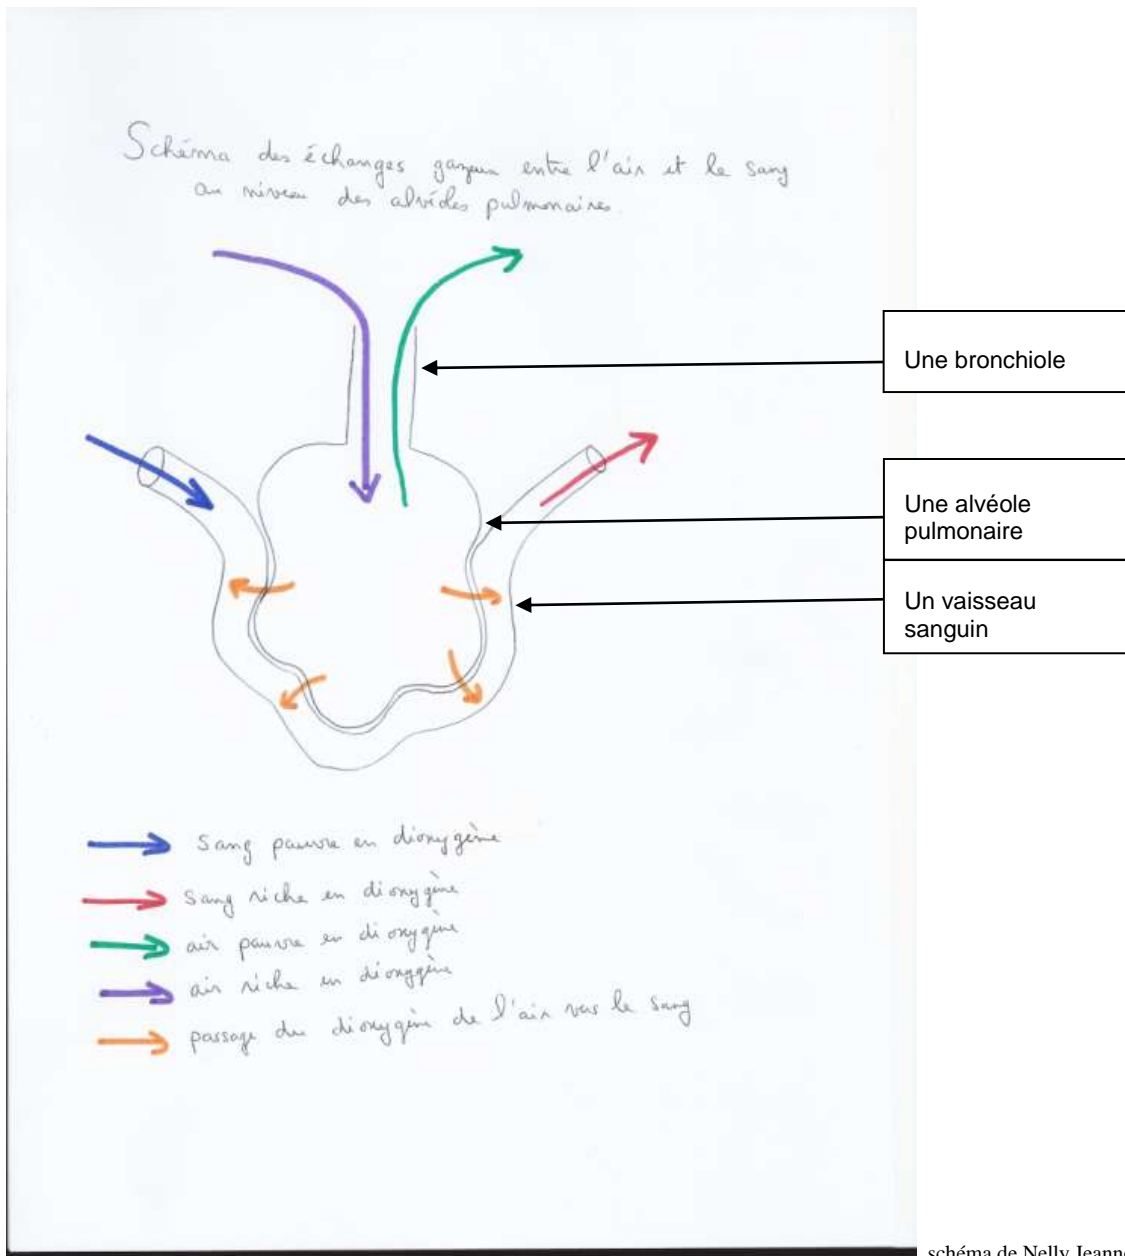 Schéma des échanges gazeux entre l'air et le sang
au niveau des alvéoles pulmonaires.
Une bronchiole
Une alvéole
pulmonaire
Un vaisseau
sanguin
sang pauvre en dioxygène
sang riche en dioxygène
air pauvre en dioxygène
air riche en dioxygène
passage du dioxygène de l'air vers le sang
schéma de Nelly Jeanne